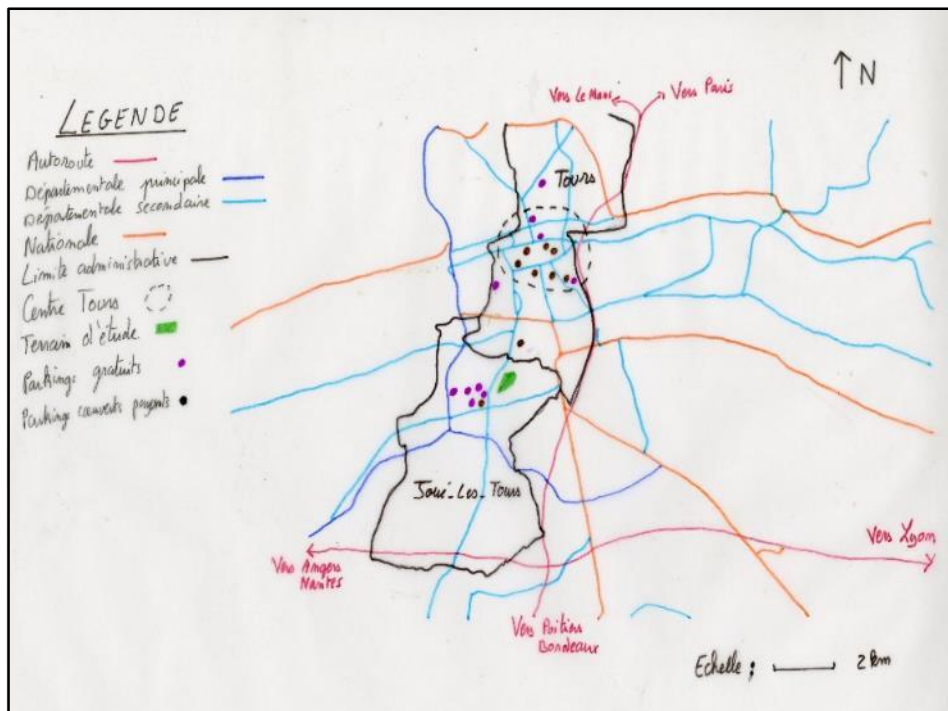 LEGENDE
Autoroute
Départementale principale
Départementale secondaire
Nationale
Limite administrative
Centre Tours
Terrain d'étude
Parkings gratuits
Parkings couverts payants
N
Vers Le Mans
Vers Paris
Tours
Joué-Les-Tours
Vers Angers
Nantes
Vers Lyon
Vers Poitiers
Bordeaux
Echelle : 2 km